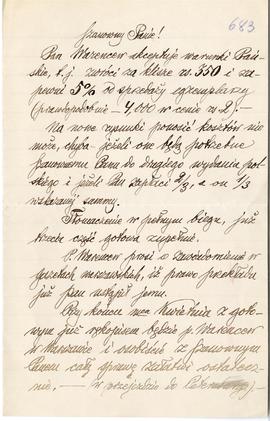 683
Szanowny Panie!
Pan Warencew akceptuje warunki Pań-
skie, t.j. zwróci za klisze rs. 350 i za-
pewni 5% od sprzedaży egzemplarzy
(prawdopodobnie – 4,000 w cenie rs. 2)–
Na nowe rysunki ponosić kosztów nie
może, chyba jeżeli one będą potrzebne
szanownemu Panu do drugiego wydania pol-
skiego i jeżeli Pan zapłaci 2/3, a on 1/3
wskazanej summy.
Tłomaczenie w pełnym biegu, już
trzecia część gotowa zupełnie.
P. Warencew prosi o zawiadomienie w
gazetach warszawskich, iż prawo przekładu
już Pan ustąpił jemu.
Przy końcu m-ca Kwietnia z goto-
wym już rękopisem będzie p. Warencew
w Warszawie i osobiście z szanownym
Panem całą sprawę załatwi ostatecz-
nie. — (w przejeździe do